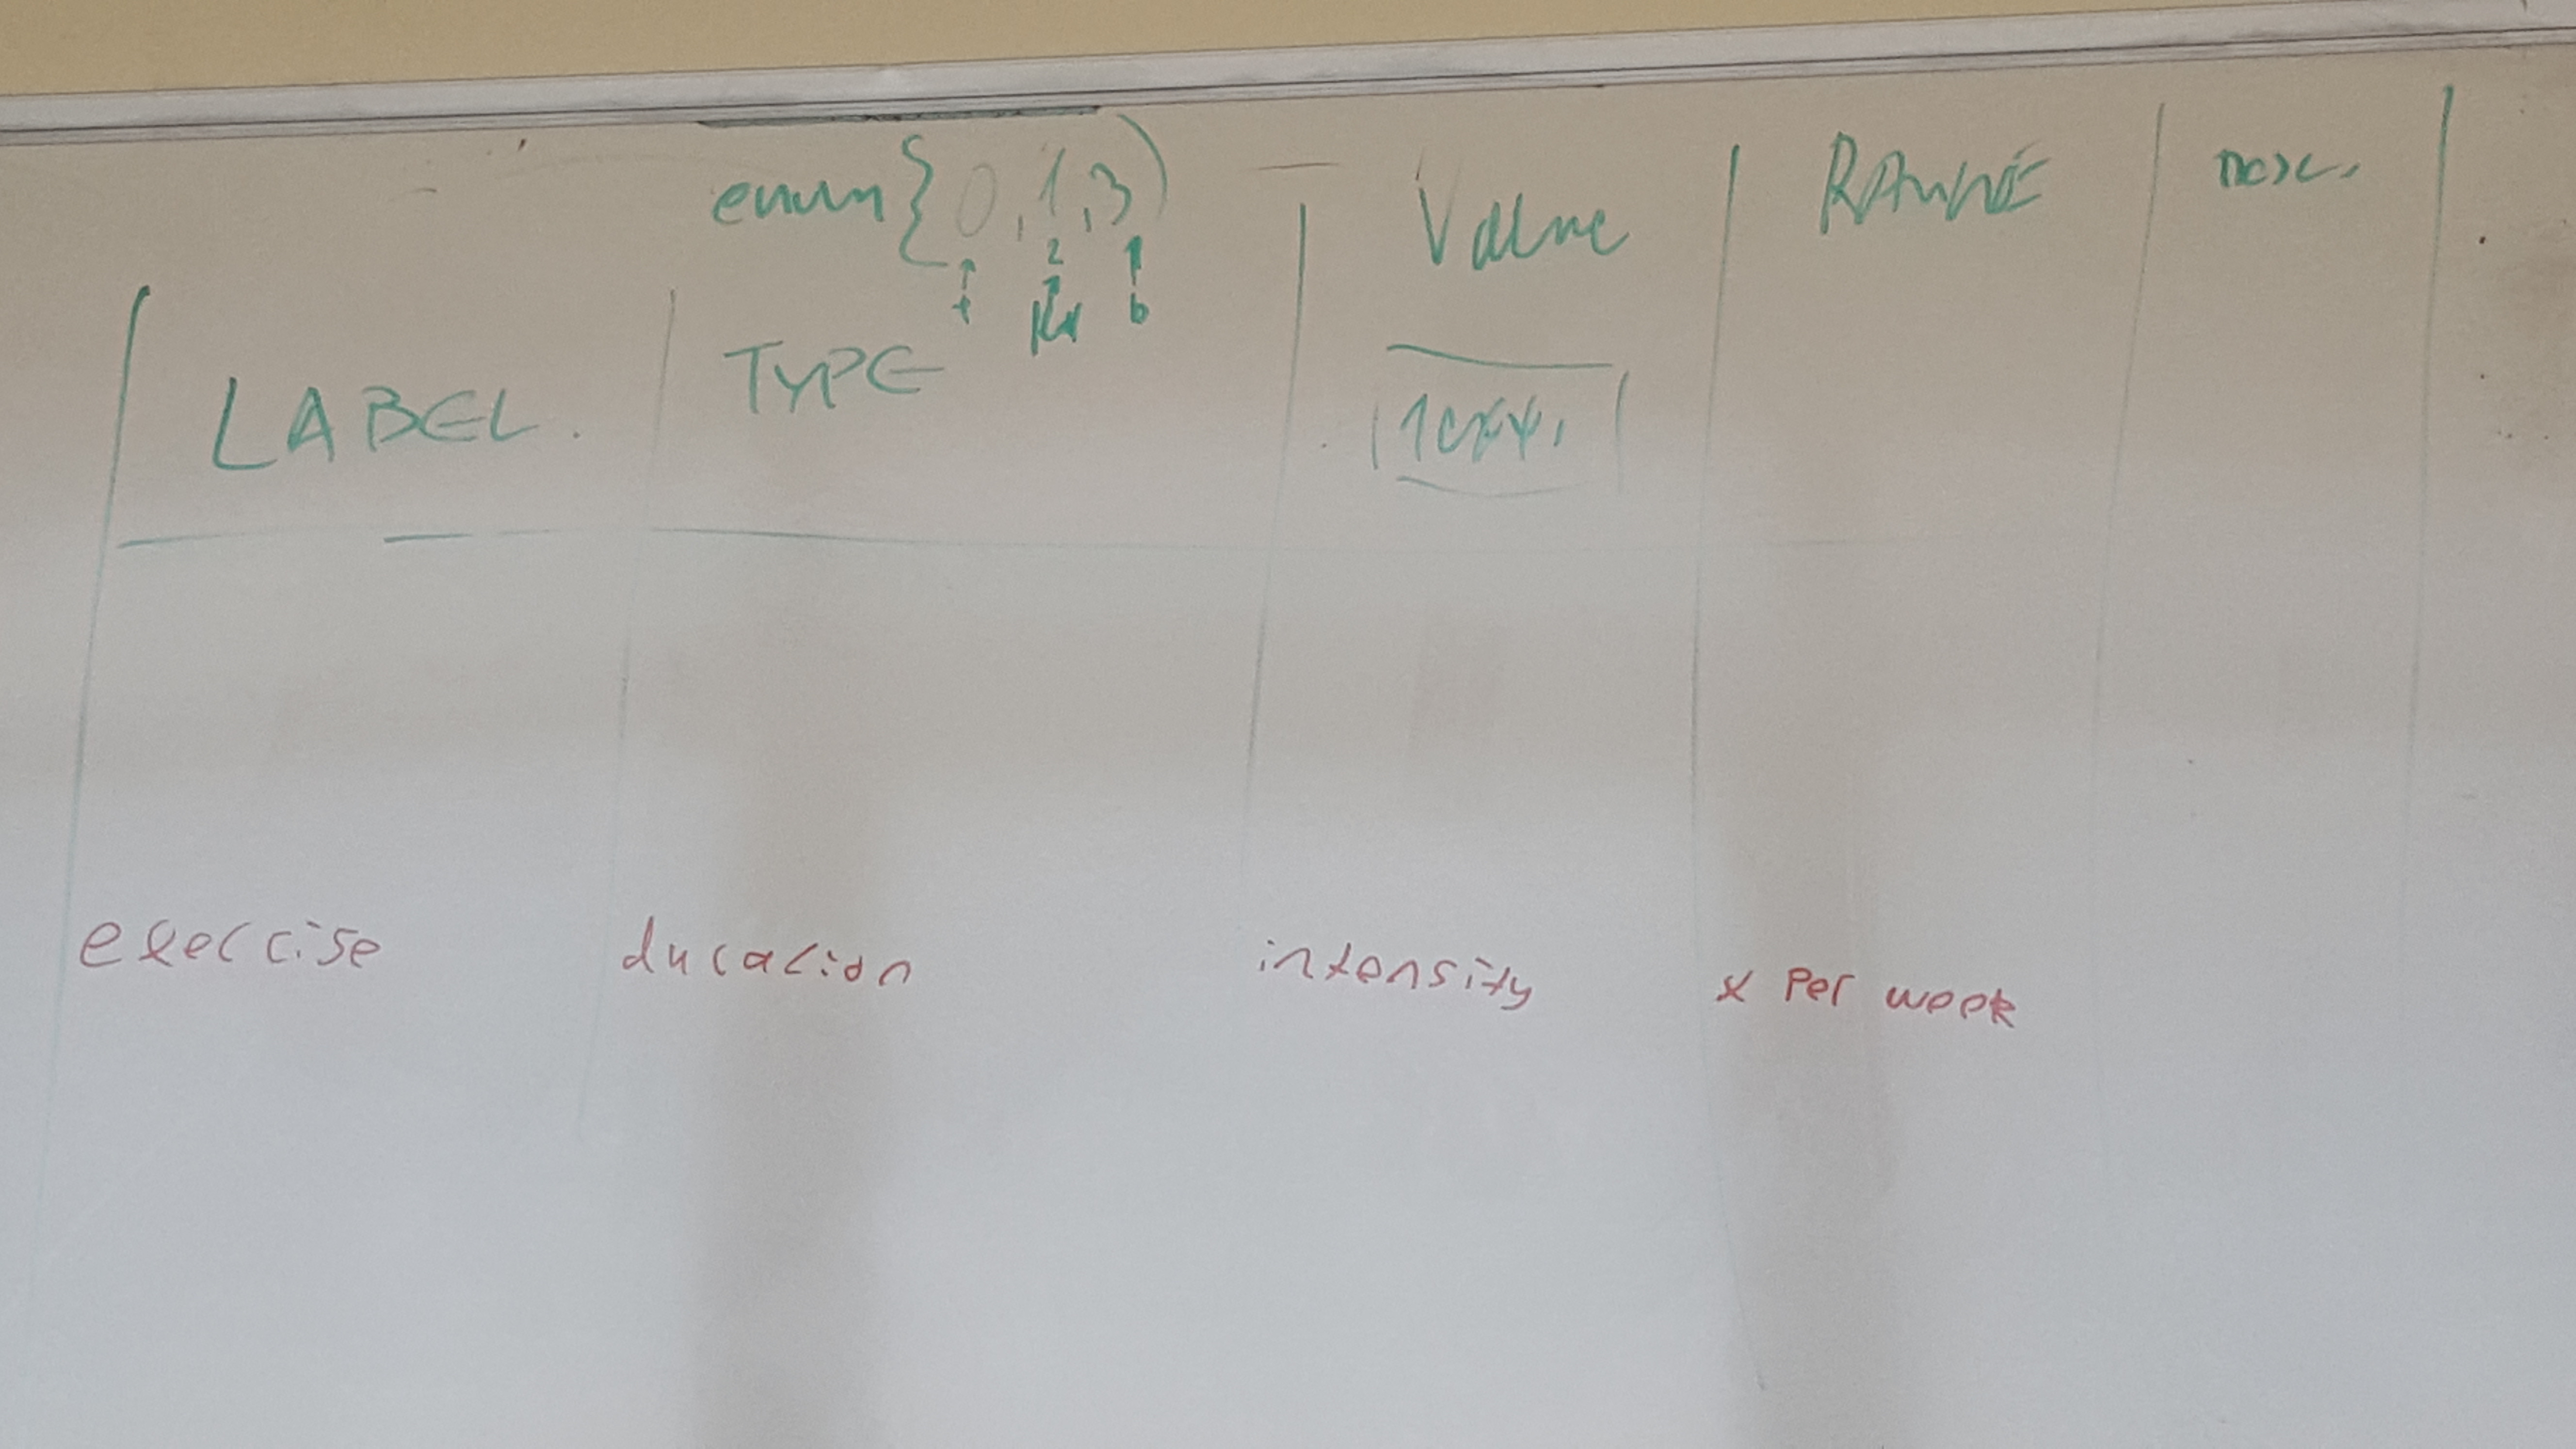 enum{0,1,3)
2
t b
LABEL. TYPE Value RANGE
exercise duration intensity x per week